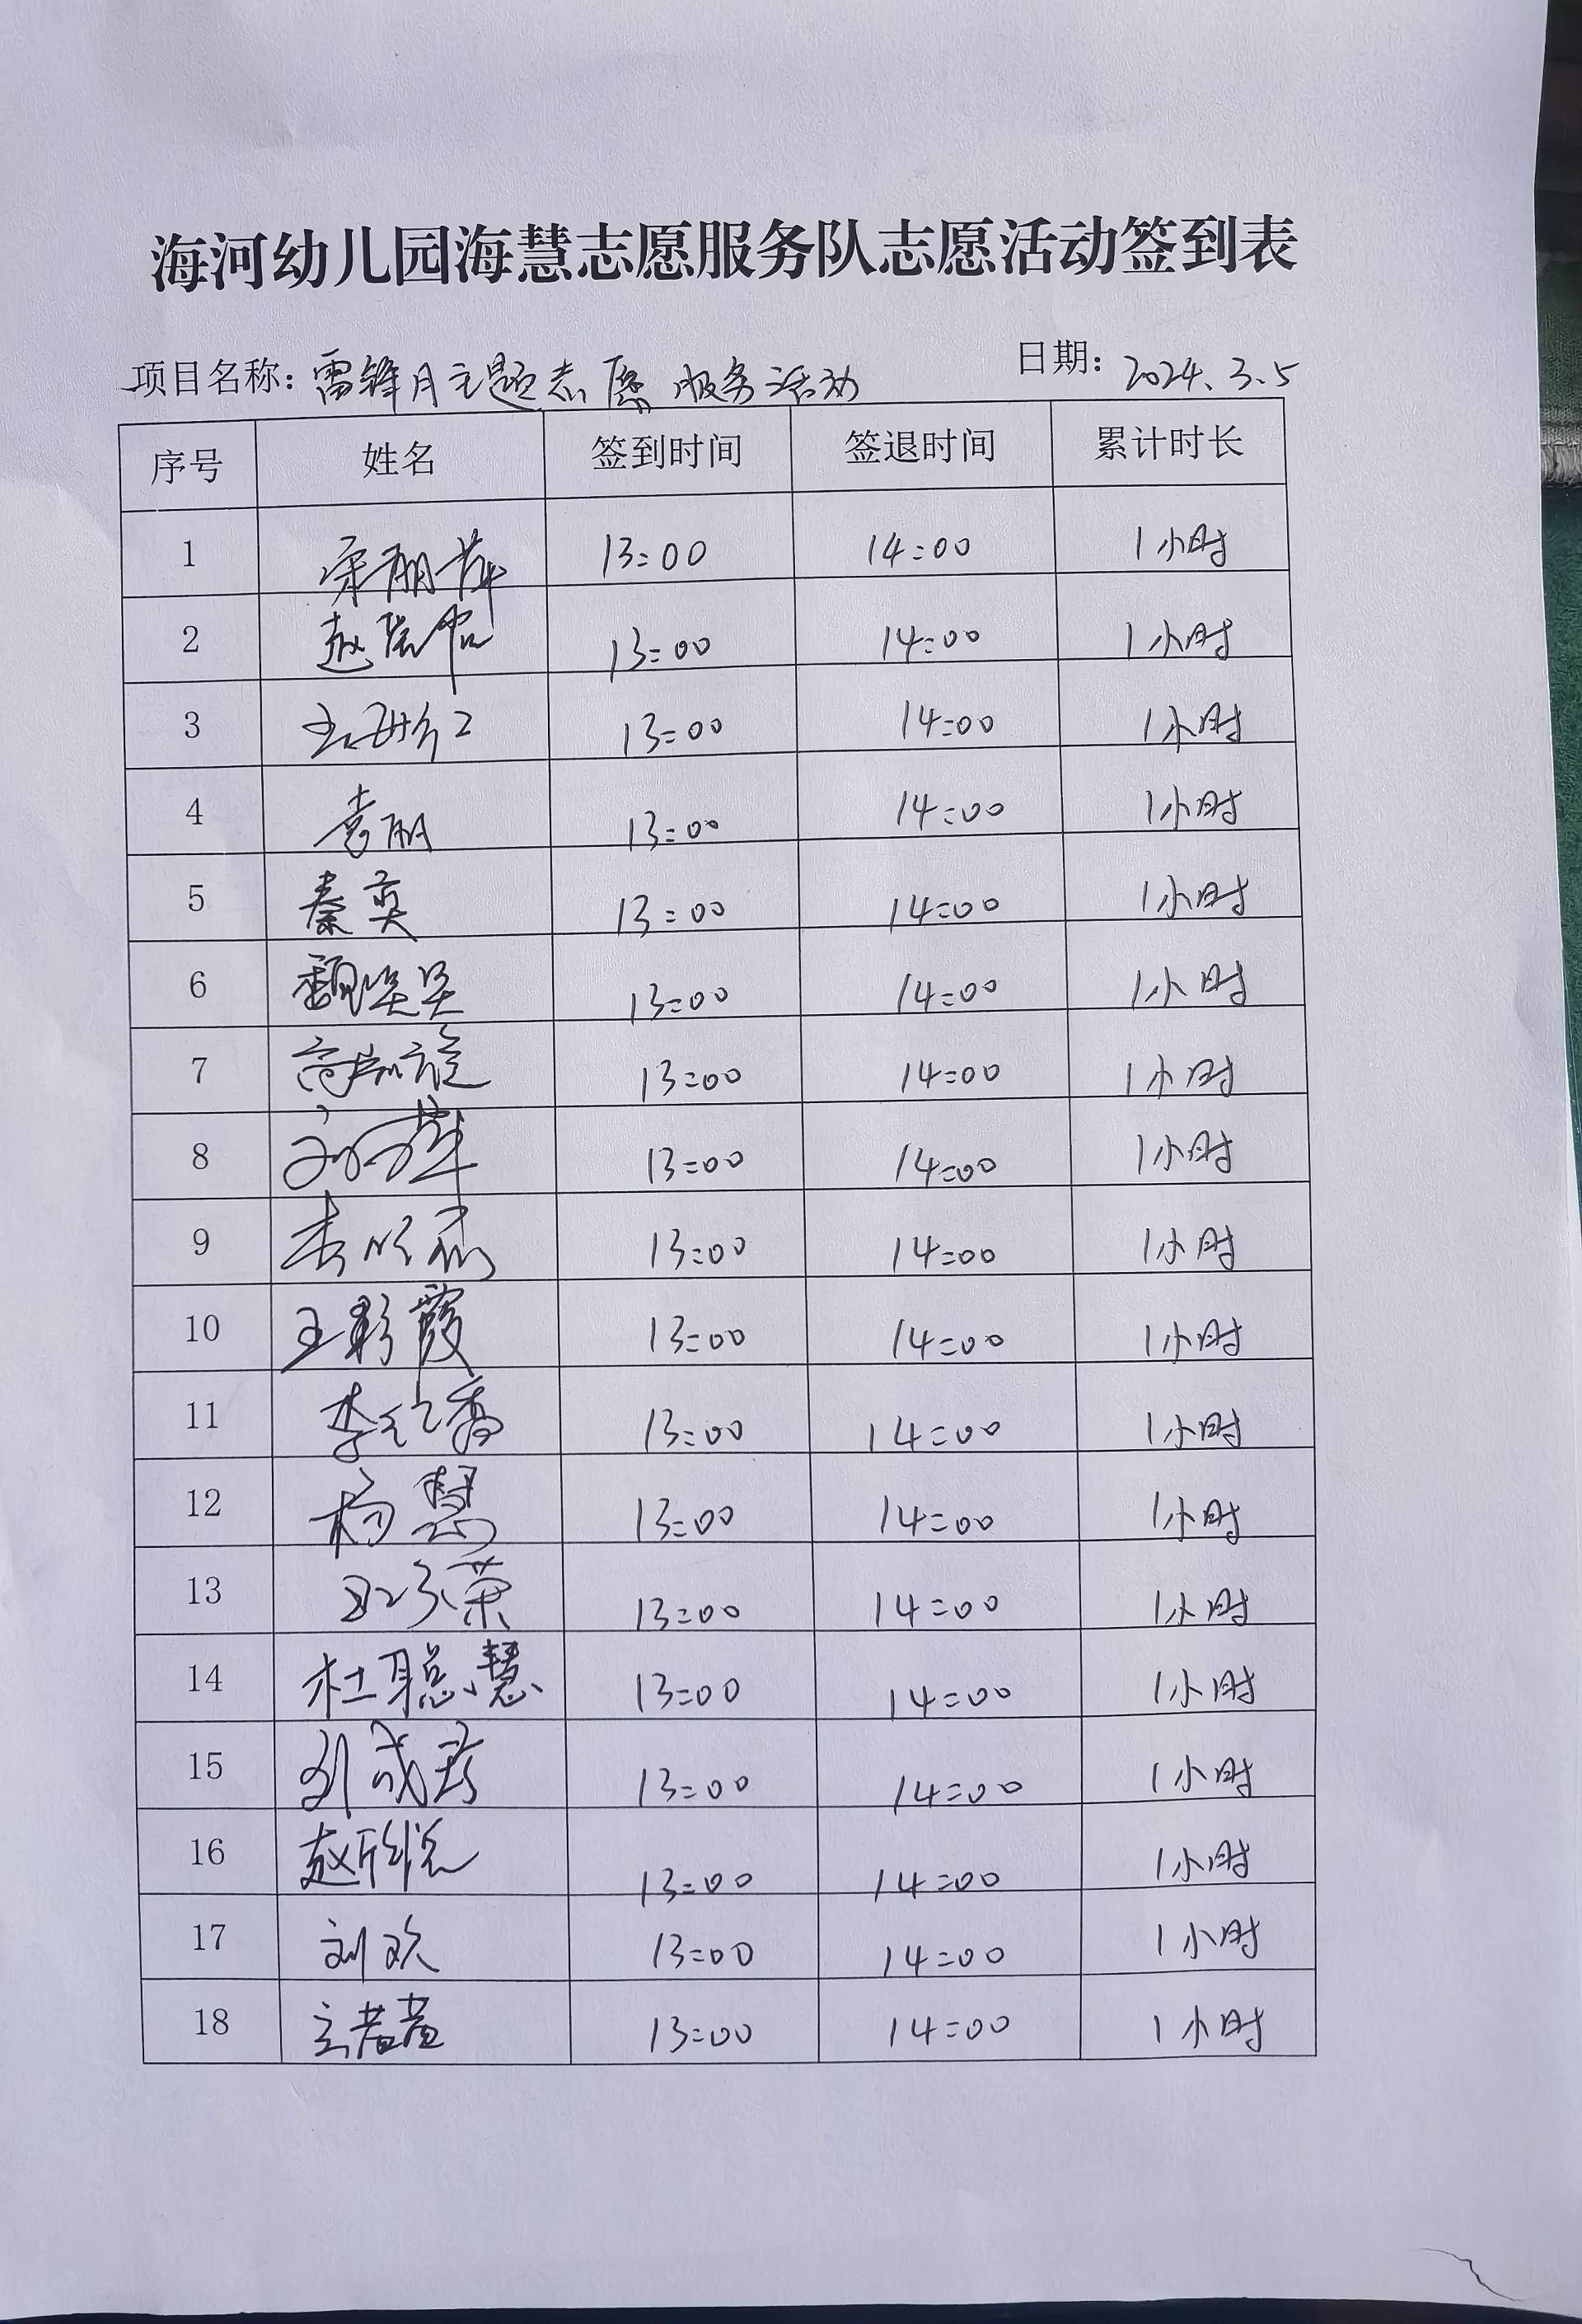 海河幼儿园海慧志愿服务队志愿活动签到表
项目名称：雷锋月主题志愿服务活动 日期：2024.3.5
序号 姓名 签到时间 签退时间 累计时长
1 13:00 14:00 1小时
2 13:00 14:00 1小时
3 13:00 14:00 1小时
4 袁丽 13:00 14:00 1小时
5 秦奕 13:00 14:00 1小时
6 13:00 14:00 1小时
7 13:00 14:00 1小时
8 13:00 14:00 1小时
9 13:00 14:00 1小时
10 王彩霞 13:00 14:00 1小时
11 13:00 14:00 1小时
12 杨慧 13:00 14:00 1小时
13 13:00 14:00 1小时
14 杜聪慧 13:00 14:00 1小时
15 13:00 14:00 1小时
16 13:00 14:00 1小时
17 刘欢 13:00 14:00 1小时
18 13:00 14:00 1小时